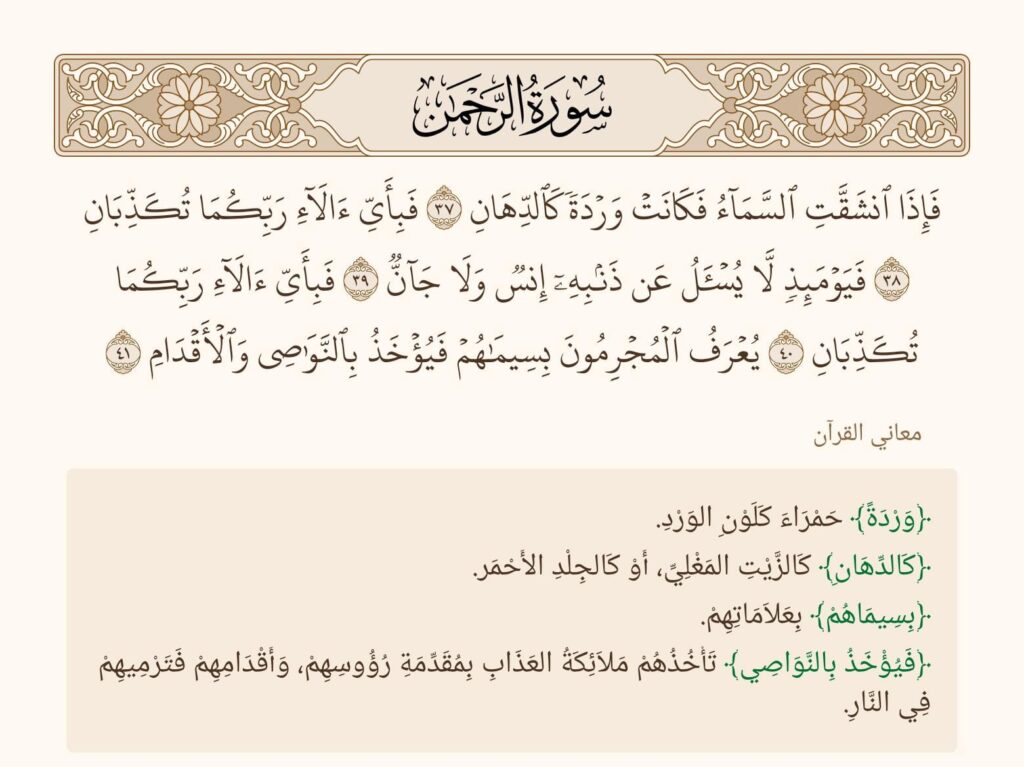 سُورَةُ الرَّحْمَٰن
فَإِذَا ٱنشَقَّتِ ٱلسَّمَآءُ فَكَانَتۡ وَرۡدَةٗ كَٱلدِّهَانِ ٣٧ فَبِأَيِّ ءَالَآءِ رَبِّكُمَا تُكَذِّبَانِ
٣٨ فَيَوۡمَئِذٖ لَّا يُسۡـَٔلُ عَن ذَنۢبِهِۦٓ إِنسٞ وَلَا جَآنّٞ ٣٩ فَبِأَيِّ ءَالَآءِ رَبِّكُمَا
تُكَذِّبَانِ ٤٠ يُعۡرَفُ ٱلۡمُجۡرِمُونَ بِسِيمَٰهُمۡ فَيُؤۡخَذُ بِٱلنَّوَٰصِي وَٱلۡأَقۡدَامِ ٤١
معاني القرآن
﴿وَرْدَةً﴾ حَمْرَاءَ كَلَوْنِ الوَرْدِ.
﴿كَالدِّهَانِ﴾ كَالزَّيْتِ المَغْلِيِّ، أَوْ كَالجِلْدِ الأَحْمَر.
﴿بِسِيمَاهُمْ﴾ بِعَلَامَاتِهِمْ.
﴿فَيُؤْخَذُ بِالنَّوَاصِي﴾ تَأْخُذُهُمْ مَلَائِكَةُ العَذَابِ بِمُقَدِّمَةِ رُؤُوسِهِمْ، وَأَقْدَامِهِمْ فَتَرْمِيهِمْ
فِي النَّارِ.